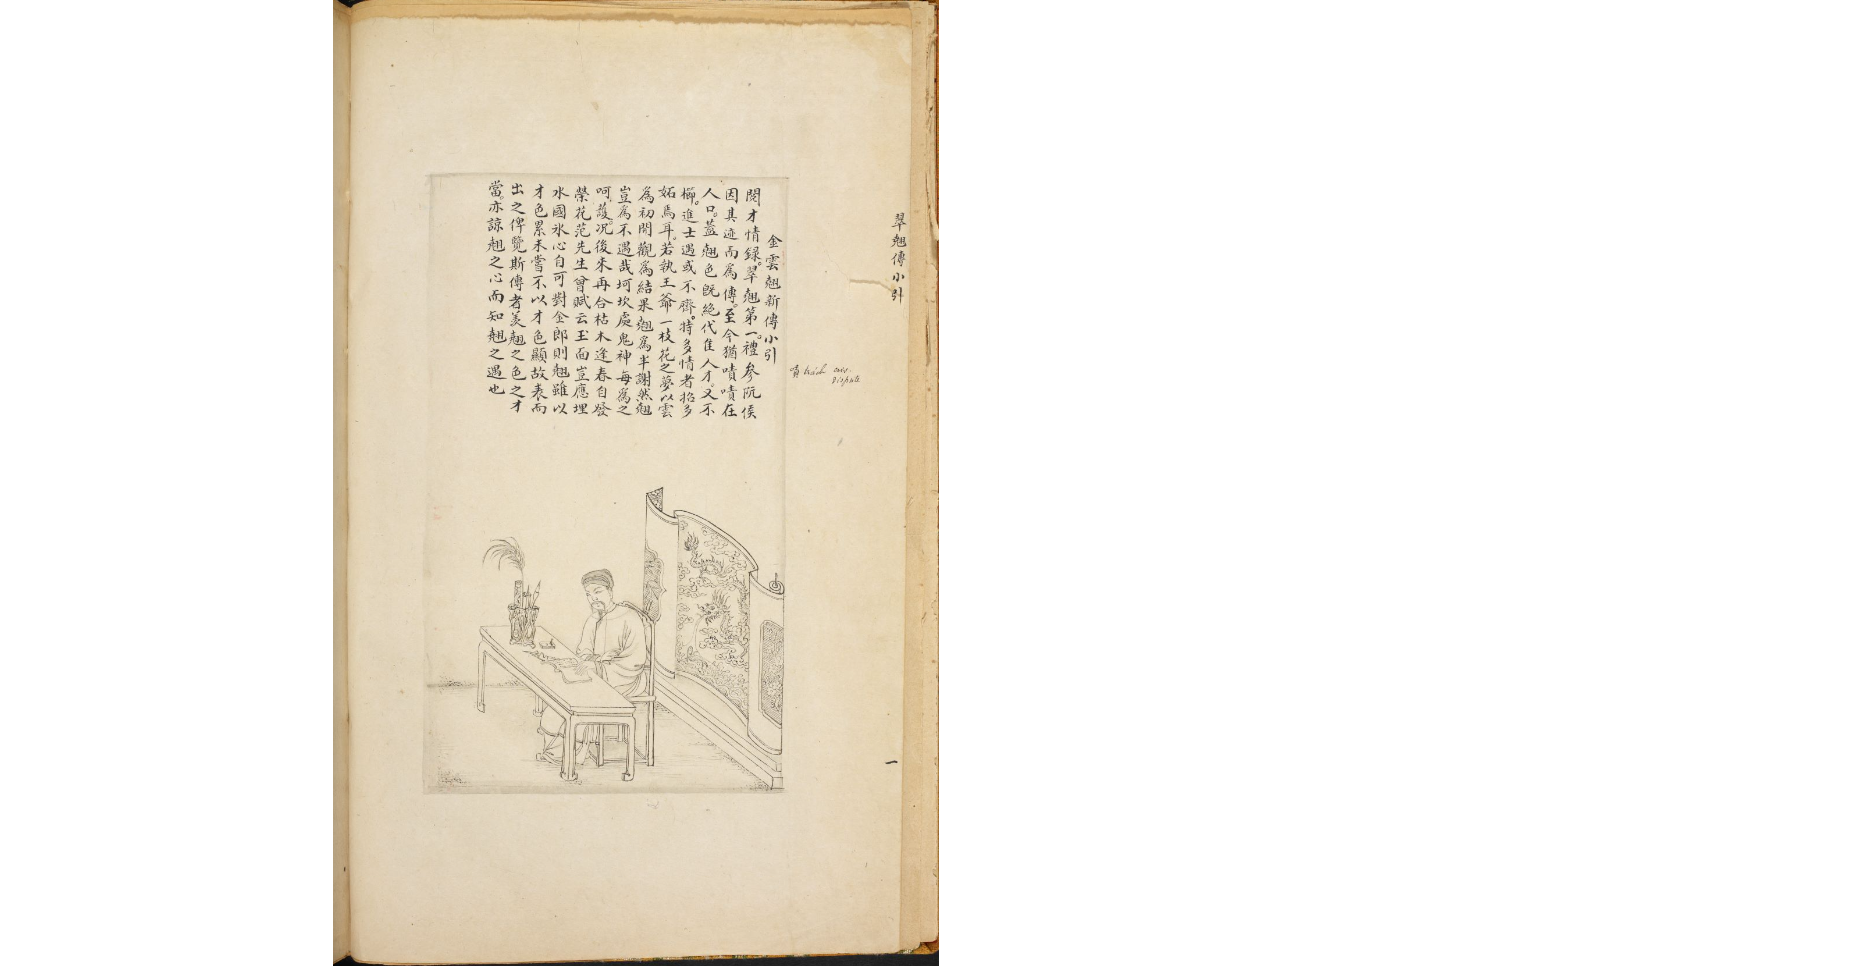 翠翹傳小引
一
金雲翹新傳小引
閱才情録。翠翹第一。禮參阮侯
因其迹而為傳。至今猶嘖嘖在
人口。蓋翹色既絶代隹人才。又不
櫛。進士遇或不齊。特多情者招多
妬焉耳。若執王爺一枝花之夢以雲
為初閉觀為結果翹為半謝然翹
豈為不遇哉坷坎處鬼神每為之
呵護。况後来再合枯木逢春自發
榮花范先生曾賦云玉面豈應埋
水國氷心自可對金郎則翹雖以
才色累未嘗不以才色顯故表而
出之俾覽斯傳者羨翹之色之才
當。亦諒翹之心而知翹之遇也
嘖 trách cris.
dispute